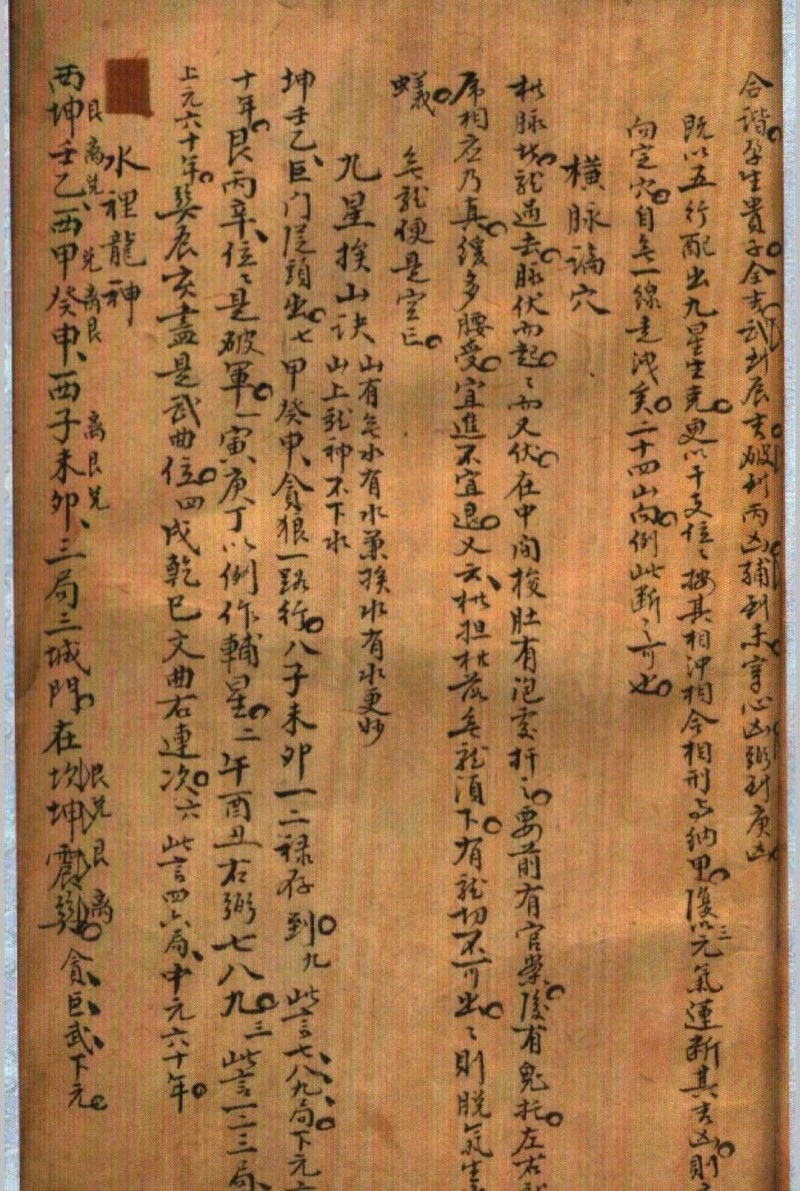 合諧孕生貴子全吉武到辰吉破到丙凶輔到未穿心凶弼到庚凶
既以五行配出九星生克更以干支位〻按其相沖相合相刑与納甲復以三元氣運断其吉凶則
向定穴自無一線走洩矣二十四山向例此断〻可也
橫脉騎穴
枕脉坐龍過去脉伏而起〻而又伏在中間梭肚有泡處扦之要前有官禁後有鬼托左右
席相应乃真緩多腰受宜進不宜退又云枕担枕落無龍須下有龍切不可出〻則脱氣生
蟻無龍便是空亡
九星挨山訣
山有無水有水兼挨水有水更妙
山上龍神不下水
坤壬乙巨门從頭出七甲癸申貪狼一路行八子未卯一二祿存到九此言七八九局下元六
十年艮丙辛位〻是破軍一寅庚丁以例作輔星二午酉丑右弼七八九三此言一二三局
上元六十年巽辰亥盡是武曲位四戌乾巳文曲右連次六此言四六局中元六十年
水裡龍神
艮离兑 兑离艮 离艮兑 艮兑艮离
西坤壬乙西甲癸申西子未卯三局三城門在坎坤震巽貪巨武下元